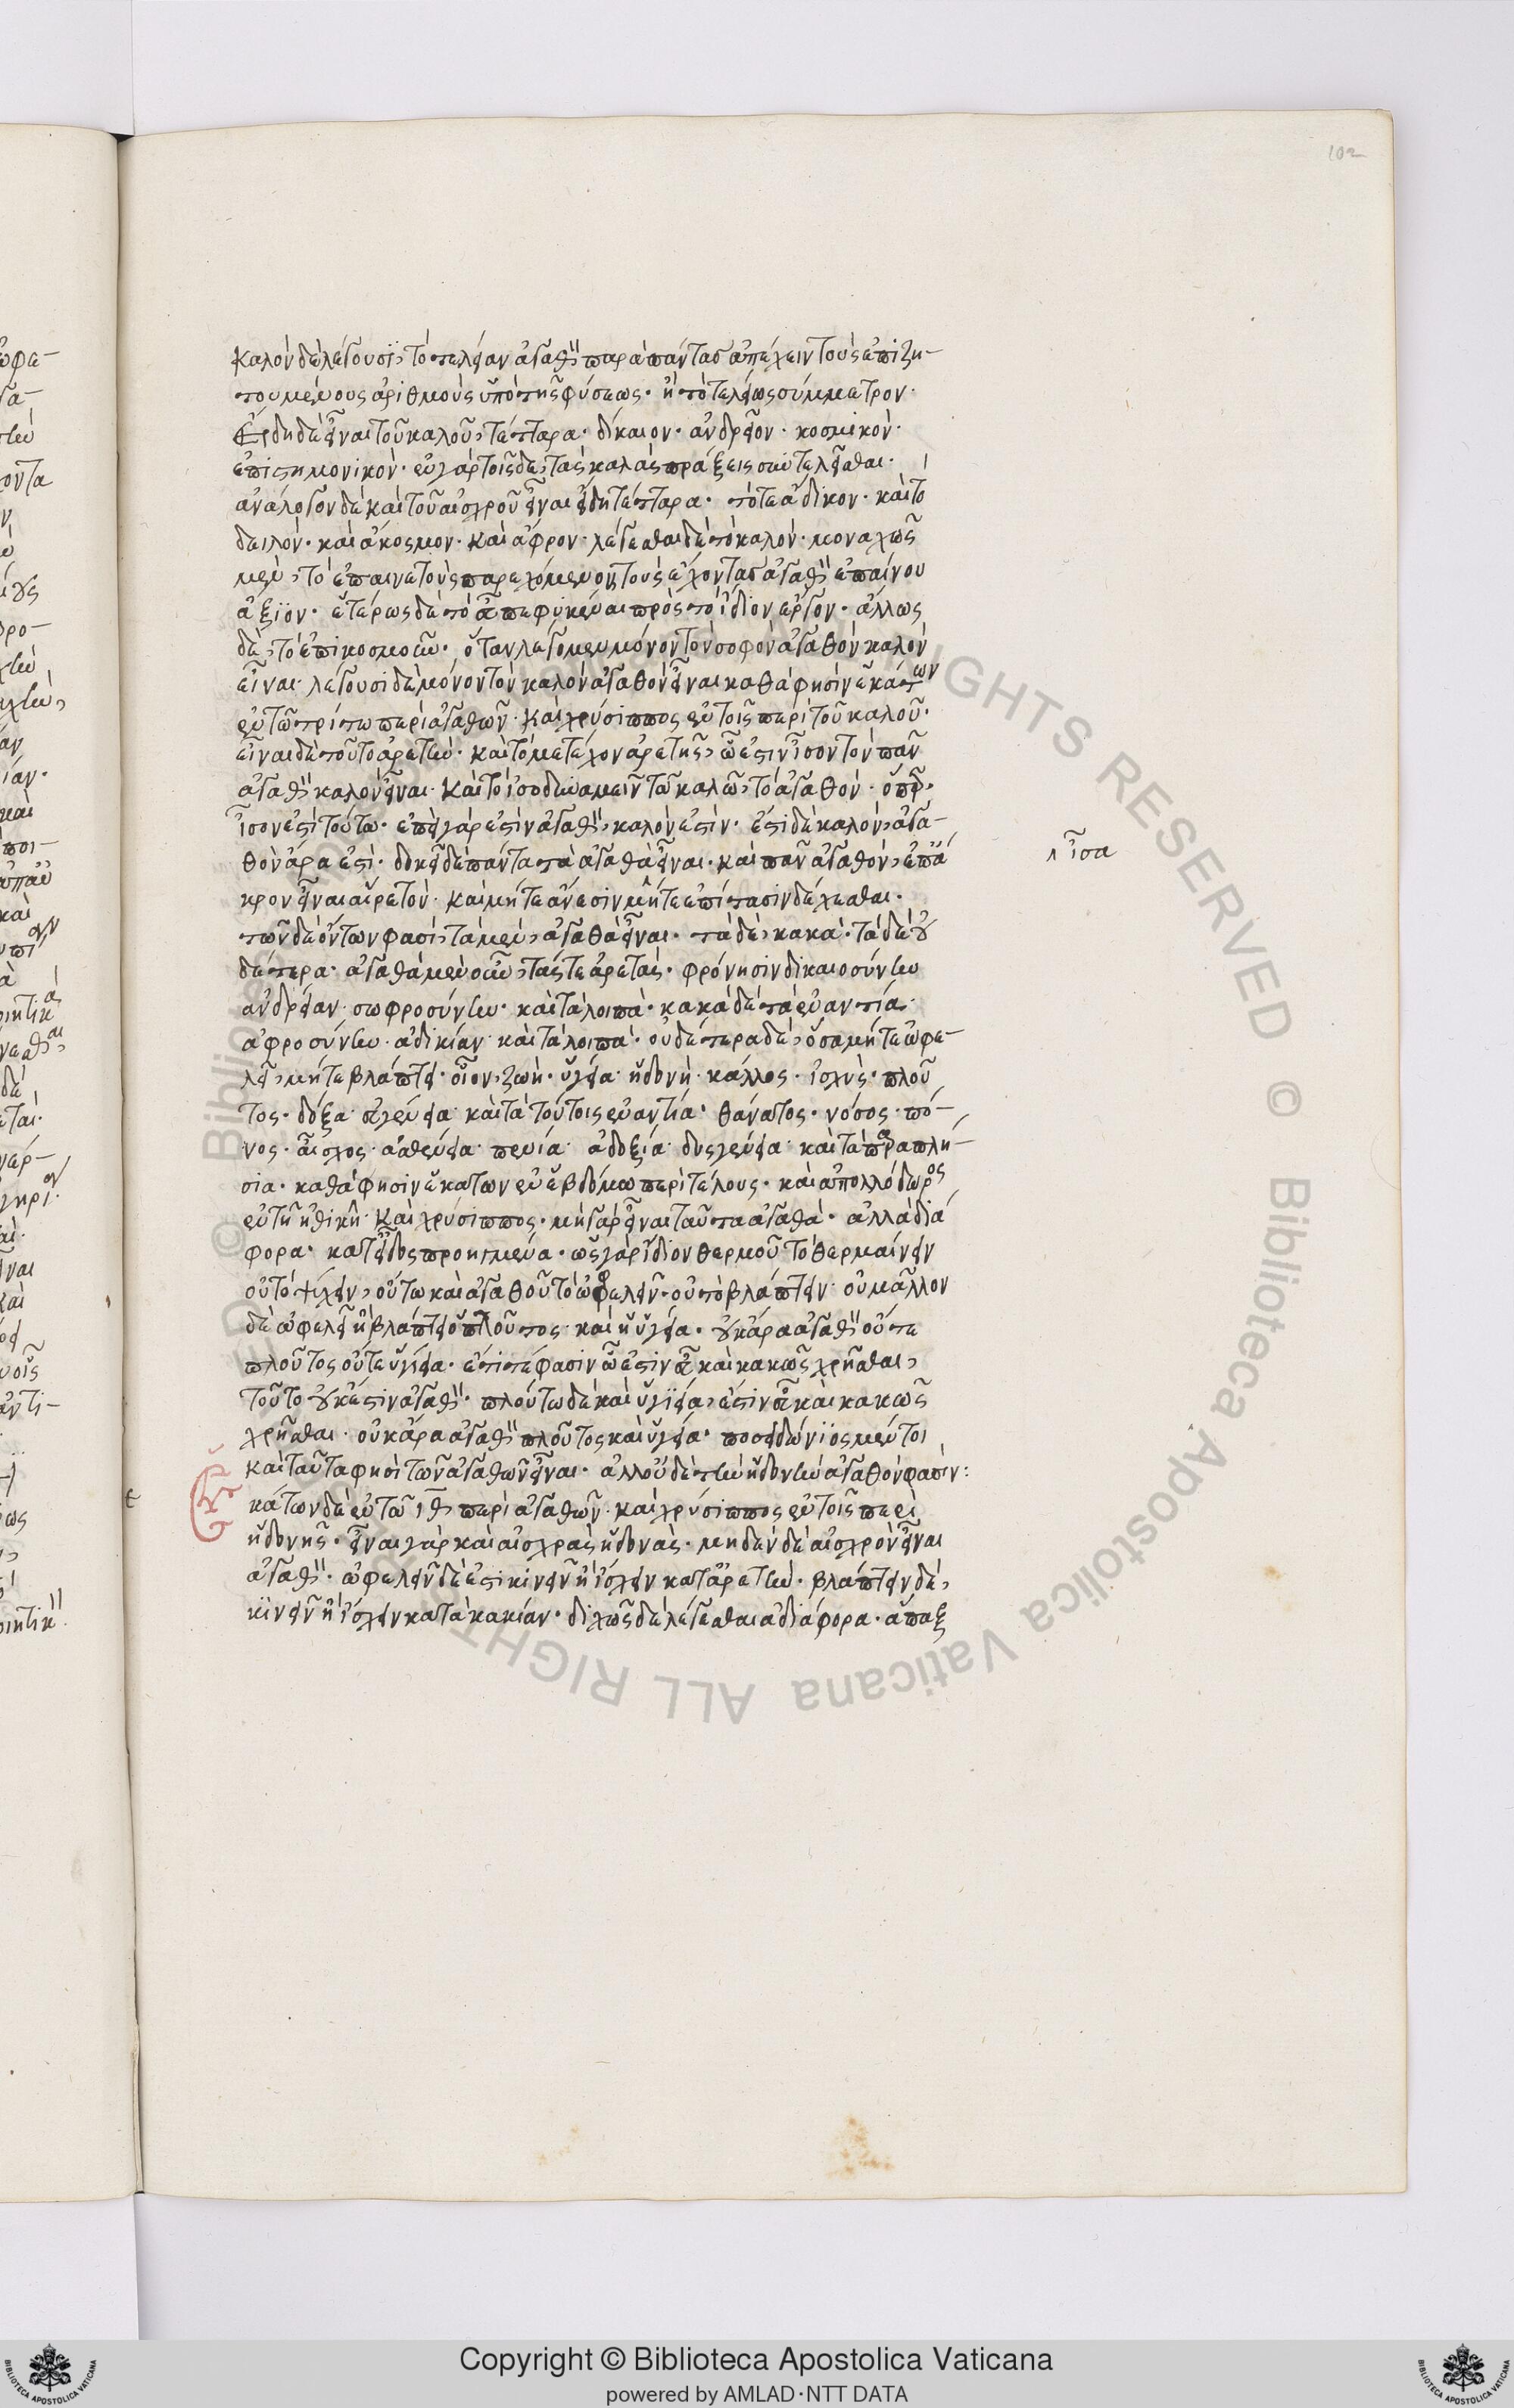 102
καλὸν δὲ λέγουσι, τὸ τελείαν ἀγαθὸν παρὰ πάντας ἀπέχειν τοὺς ἐπιζη-
τουμένους ἀριθμοὺς ὑπὸ τῆς φύσεως· ἢ τὸ τελείως σύμμετρον·
εἴδη δὲ εἶναι τοῦ καλοῦ, τέτταρα· δίκαιον· ἀνδρεῖον· κοσμικὸν·
ἐπιστημονικὸν· ἐν γὰρ τοῖς δε, τὰς καλὰς πράξεις συντελεῖσθαι·
ἀνάλογον δὲ καὶ τοῦ αἰσχροῦ εἶναι εἴδη τέτταρα· τό τε ἄδικον· καὶ τὸ
δειλόν· καὶ ἄκοσμον· καὶ ἄφρον· λέγεσθαι δὲ τὸ καλόν· μοναχῶς
μὲν, τὸ ἐπαινετοὺς παρεχόμενον τοὺς ἔχοντας ἀγαθὸν ἐπαίνου
ἄξιον· ἑτέρως δὲ τὸ εὖ πεφυκέναι πρὸς τὸ ἴδιον ἔργον· ἄλλως
δὲ, τὸ ἐπικοσμοῦν· ὅταν λέγομεν μόνον τὸν σοφὸν ἀγαθὸν καλὸν
εἶναι· λέγουσι δὲ μόνον τὸν καλὸν ἀγαθὸν εἶναι καθά φησιν ἑκάτων
ἐν τῷ τρίτω περὶ ἀγαθῶν· καὶ χρύσιππος ἐν τοῖς περὶ τοῦ καλοῦ·
εἶναι δὲ τοῦτο ἀρετὴν· καὶ τὸ μετέχον ἀρετῆς, ὧ ἐστιν ἴσον τὸν πᾶν
ἀγαθὸν καλὸν εἶναι· καὶ τὸ ἰσοδυναμεῖν τῶ καλῶ, τὸ ἀγαθόν· ὅπερ·
ἴσον ἐστὶ τούτω· ἐπεὶ γάρ ἐστιν ἀγαθὸν, καλόν ἐστιν· ἔστι δὲ καλόν, ἀγα-
θὸν ἄρα ἐστὶ· δοκεῖ δὲ πάντα τὰ ἀγαθὰ εἶναι· καὶ πᾶν ἀγαθὸν, ἐπ' ἄ-
^ ἴσα
κρον εἶναι αἱρετὸν· καὶ μήτε ἄνεσιν μήτε ἐπίτασιν δέχεσθαι·
τῶν δὲ ὄντων φασί, τὰ μὲν, ἀγαθὰ εἶναι· τὰ δὲ, κακὰ· τὰ δὲ οὐ
δέτερα· ἀγαθὰ μὲν οὖν, τάς τε ἀρετάς· φρόνησιν δικαιοσύνην
ἀνδρείαν· σωφροσύνην· καὶ τὰ λοιπὰ· κακὰ δὲ τὰ ἐναντία·
ἀφροσύνην· ἀδικίαν· καὶ τὰ λοιπὰ· οὐδέτερα δὲ, ὅσα μήτε ὠφε-
λεῖ, μήτε βλάπτει· οἷον, ζωὴ· ὑγεία· ἡδονὴ· κάλλος· ἰσχὺς· πλοῦ
τος· δόξα· εὐγένεια· καὶ τὰ τούτοις ἐναντία· θάνατος· νόσος· πό-
νος· αἶσχος· ἀσθένεια· πενία· ἀδοξία· δυσγένεια· καὶ τὰ παραπλή-
σια· καθά φησιν ἑκάτων ἐν ἑβδόμω περὶ τέλους· καὶ ἀπολλόδωρος
ἐν τῇ ἠθικῇ· καὶ χρύσιππος· μὴ γὰρ εἶναι ταῦτα ἀγαθὰ· ἀλλ' ἀδιά
φορα· κατ' εἶδος προηγμένα· ὡς γὰρ ἴδιον θερμοῦ τὸ θερμαίνειν
οὐ τὸ ψύχειν, οὕτω καὶ ἀγαθοῦ τὸ ὠφελεῖν· οὐ τὸ βλάπτειν· οὐ μᾶλλον
δὲ ὠφελεῖ ἢ βλάπτει ὁ πλοῦτος· καὶ ἡ ὑγεία· οὐκ ἄρα ἀγαθὸν οὔτε
πλοῦτος οὔτε ὑγίεια· ἔτι τέ φασιν ὧ ἐστιν εὖ καὶ κακῶς χρῆσθαι,
τοῦτο οὐκ ἔστιν ἀγαθὸν· πλούτω δὲ καὶ ὑγιεία, ἔστιν εὖ καὶ κακῶς
χρῆσθαι· οὐκ ἄρα ἀγαθὸν πλοῦτος καὶ ὑγεία· ποσειδώνιος μέντοι
καὶ ταῦτά φησι τῶν ἀγαθῶν εἶναι· ἀλλ' οὐδὲ τὴν ἡδονὴν ἀγαθόν φασιν:
κάτων δὲ ἐν τῶ ιθ περὶ ἀγαθῶν· καὶ χρύσιππος ἐν τοῖς περὶ
ἡδονῆς· εἶναι γὰρ καὶ αἰσχρὰς ἡδονὰς· μηδὲν δὲ αἰσχρὸν εἶναι
ἀγαθὸν· ὠφελεῖν δέ ἐστι κινεῖν ἢ ἴσχειν κατ' ἀρετὴν· βλάπτειν δὲ,
κινεῖν ἢ ἴσχειν κατὰ κακίαν· διχῶς δὲ λέγεσθαι ἀδιάφορα· ἅπαξ
Copyright © Biblioteca Apostolica Vaticana
powered by AMLAD·NTT DATA